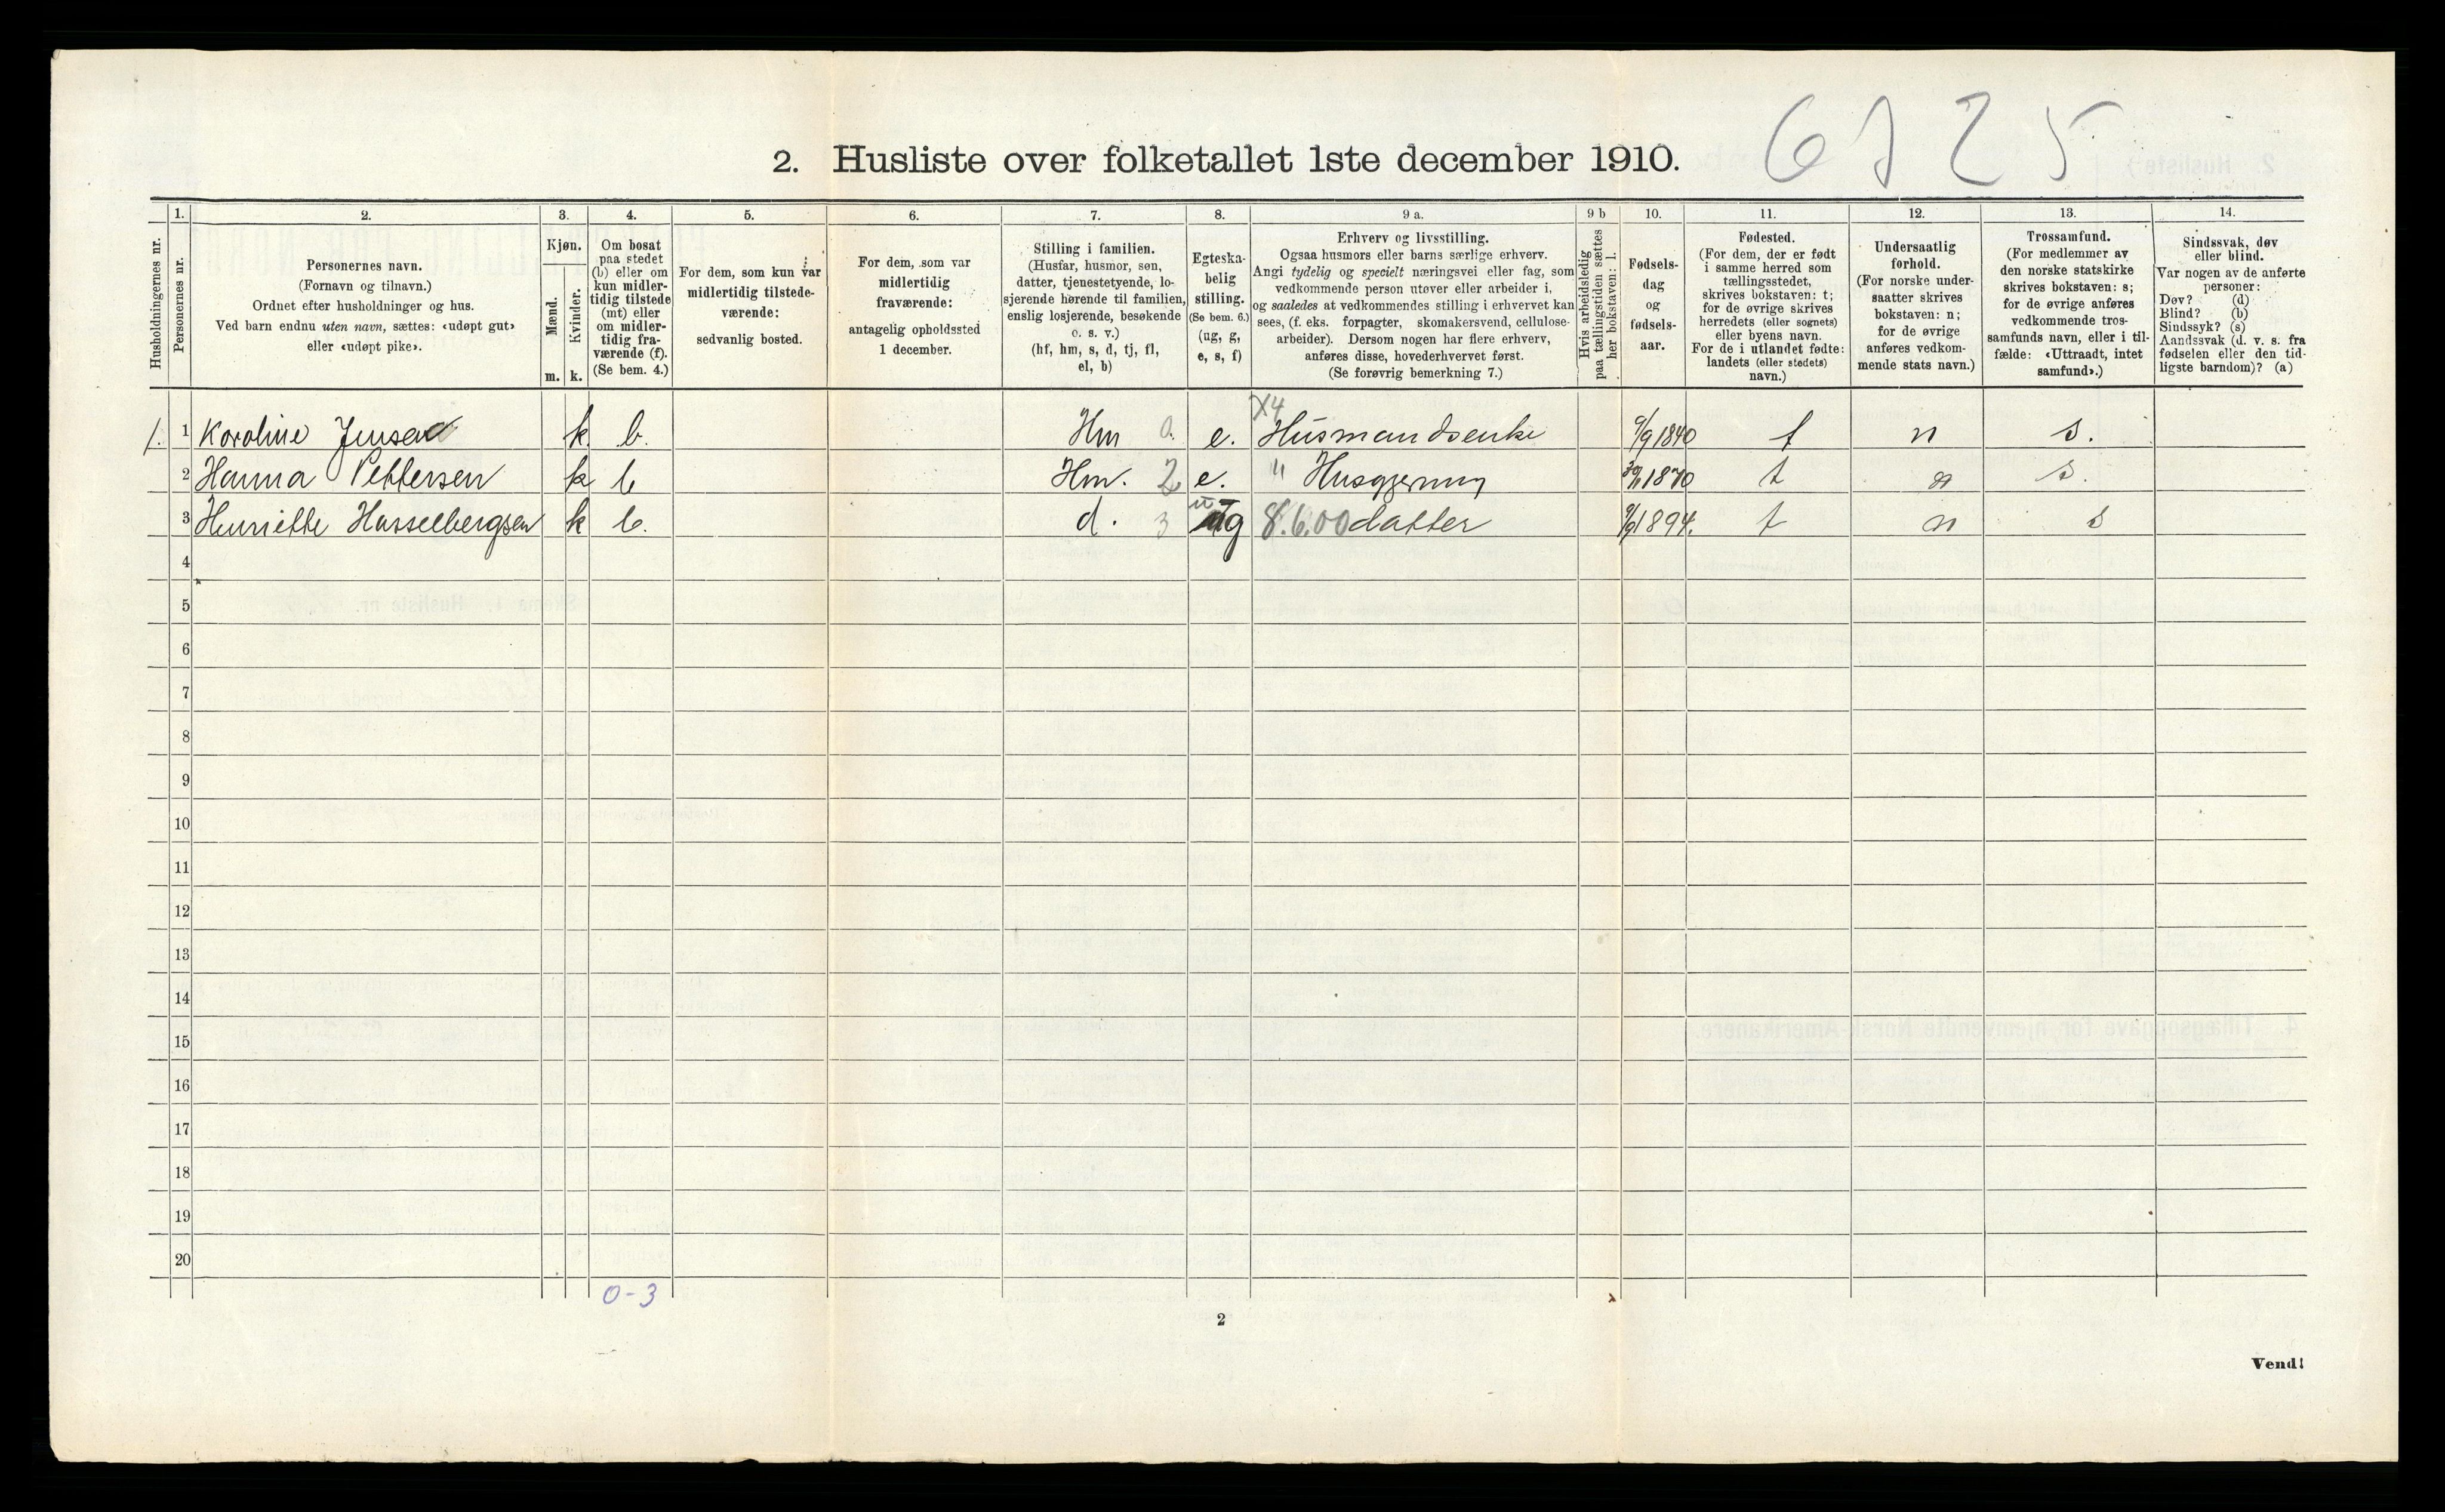 6725
2. Husliste over folketallet 1ste december 1910.
1. 2. 3. 4. 5. 6. 7. 8. 9 a. 9 b 10. 11. 12. 13. 14.
Husholdningernes nr.
Personernes nr.
Personernes navn.
(Fornavn og tilnavn.)
Ordnet efter husholdninger og hus.
Ved barn endnu uten navn, sættes: «udøpt gut»
eller «udøpt pike».
Kjøn.
Mænd.
Kvinder.
m. k.
Om bosat
paa stedet
(b) eller om
kun midler-
tidig tilstede
(mt) eller
om midler-
tidig fra-
værende (f).
(Se bem. 4.)
For dem, som kun var
midlertidig tilstede-
værende:
sedvanlig bosted.
For dem, som var
midlertidig
fraværende:
antagelig opholdssted
1 december.
Stilling i familien.
(Husfar, husmor, søn,
datter, tjenestetyende, lo-
sjerende hørende til familien,
enslig losjerende, besøkende
o. s. v.)
(hf, hm, s, d, tj, fl,
el, b)
Egteska-
belig
stilling.
(Se bem. 6.)
(ug, g,
e, s, f)
Erhverv og livsstilling.
Ogsaa husmors eller barns særlige erhverv.
Angi tydelig og specielt næringsvei eller fag, som
vedkommende person utøver eller arbeider i,
og saaledes at vedkommendes stilling i erhvervet kan
sees, (f. eks. forpagter, skomakersvend, cellulose-
arbeider). Dersom nogen har flere erhverv,
anføres disse, hovederhvervet først.
(Se forøvrig bemerkning 7.)
Hvis arbeidsledig
paa tællingstiden sættes
her bokstaven: l.
Fødsels-
dag
og
fødsels-
aar.
Fødested.
(For dem, der er født
i samme herred som
tællingsstedet,
skrives bokstaven: t;
for de øvrige skrives
herredets (eller sognets)
eller byens navn.
For de i utlandet fødte:
landets (eller stedets)
navn.)
Undersaatlig
forhold.
(For norske under-
saatter skrives
bokstaven: n;
for de øvrige
anføres vedkom-
mende stats navn.)
Trossamfund.
(For medlemmer av
den norske statskirke
skrives bokstaven: s;
for de øvrige anføres
vedkommende tros-
samfunds navn, eller i til-
fælde: «Uttraadt, intet
samfund».)
Sindssvak, døv
eller blind.
Var nogen av de anførte
personer:
Døv? (d)
Blind? (b)
Sindssyk? (s)
Aandssvak (d. v. s. fra
fødselen eller den tid-
ligste barndom)? (a)
X4
1. 1 Karoline Jensen k b. Hm 0. e. Husmandsenke 1840 t n s.
2 Hanna Pettersen k b Hm. 2 e. " Husgjerning 1870 t n s.
3 Henriette Hasselbergsen k b. d. 3 ug 8.6.00 datter 1894. t n s
4
5
6
7
8
9
10
11
12
13
14
15
16
17
18
19
20
0-3
2
Vend!